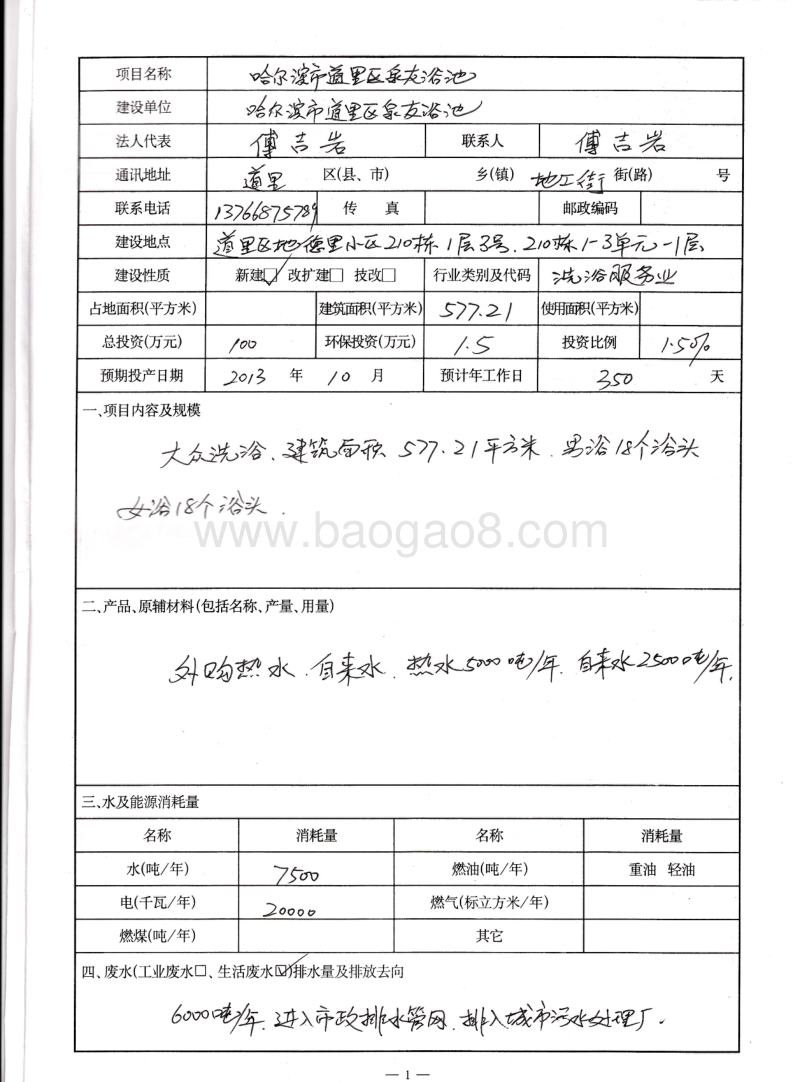 项目名称 哈尔滨市道里区泉友浴池
建设单位 哈尔滨市道里区泉友浴池
法人代表 傅吉岩 联系人 傅吉岩
通讯地址 道里 区(县、市) 乡(镇) 地工街 街(路) 号
联系电话 13766875789 传 真 邮政编码
建设地点 道里区地德里小区210栋1层3号、210栋1-3单元-1层
建设性质 新建☑ 改扩建□ 技改□ 行业类别及代码 洗浴服务业
占地面积(平方米) 建筑面积(平方米) 577.21 使用面积(平方米)
总投资(万元) 100 环保投资(万元) 1.5 投资比例 1.50%
预期投产日期 2013 年 10 月 预计年工作日 350 天
一、项目内容及规模
大众洗浴、建筑面积577.21平方米、男浴18个浴头
女浴18个浴头.
www.baogao8.com
二、产品、原辅材料(包括名称、产量、用量)
外购热水、自来水、热水5000吨/年、自来水2500吨/年,
三、水及能源消耗量
名称 消耗量 名称 消耗量
水(吨/年) 7500 燃油(吨/年) 重油 轻油
电(千瓦/年) 20000 燃气(标立方米/年)
燃煤(吨/年) 其它
四、废水(工业废水□、生活废水☑)排水量及排放去向
6000吨/年、进入市政排水管网、排入城市污水处理厂.
— 1 —